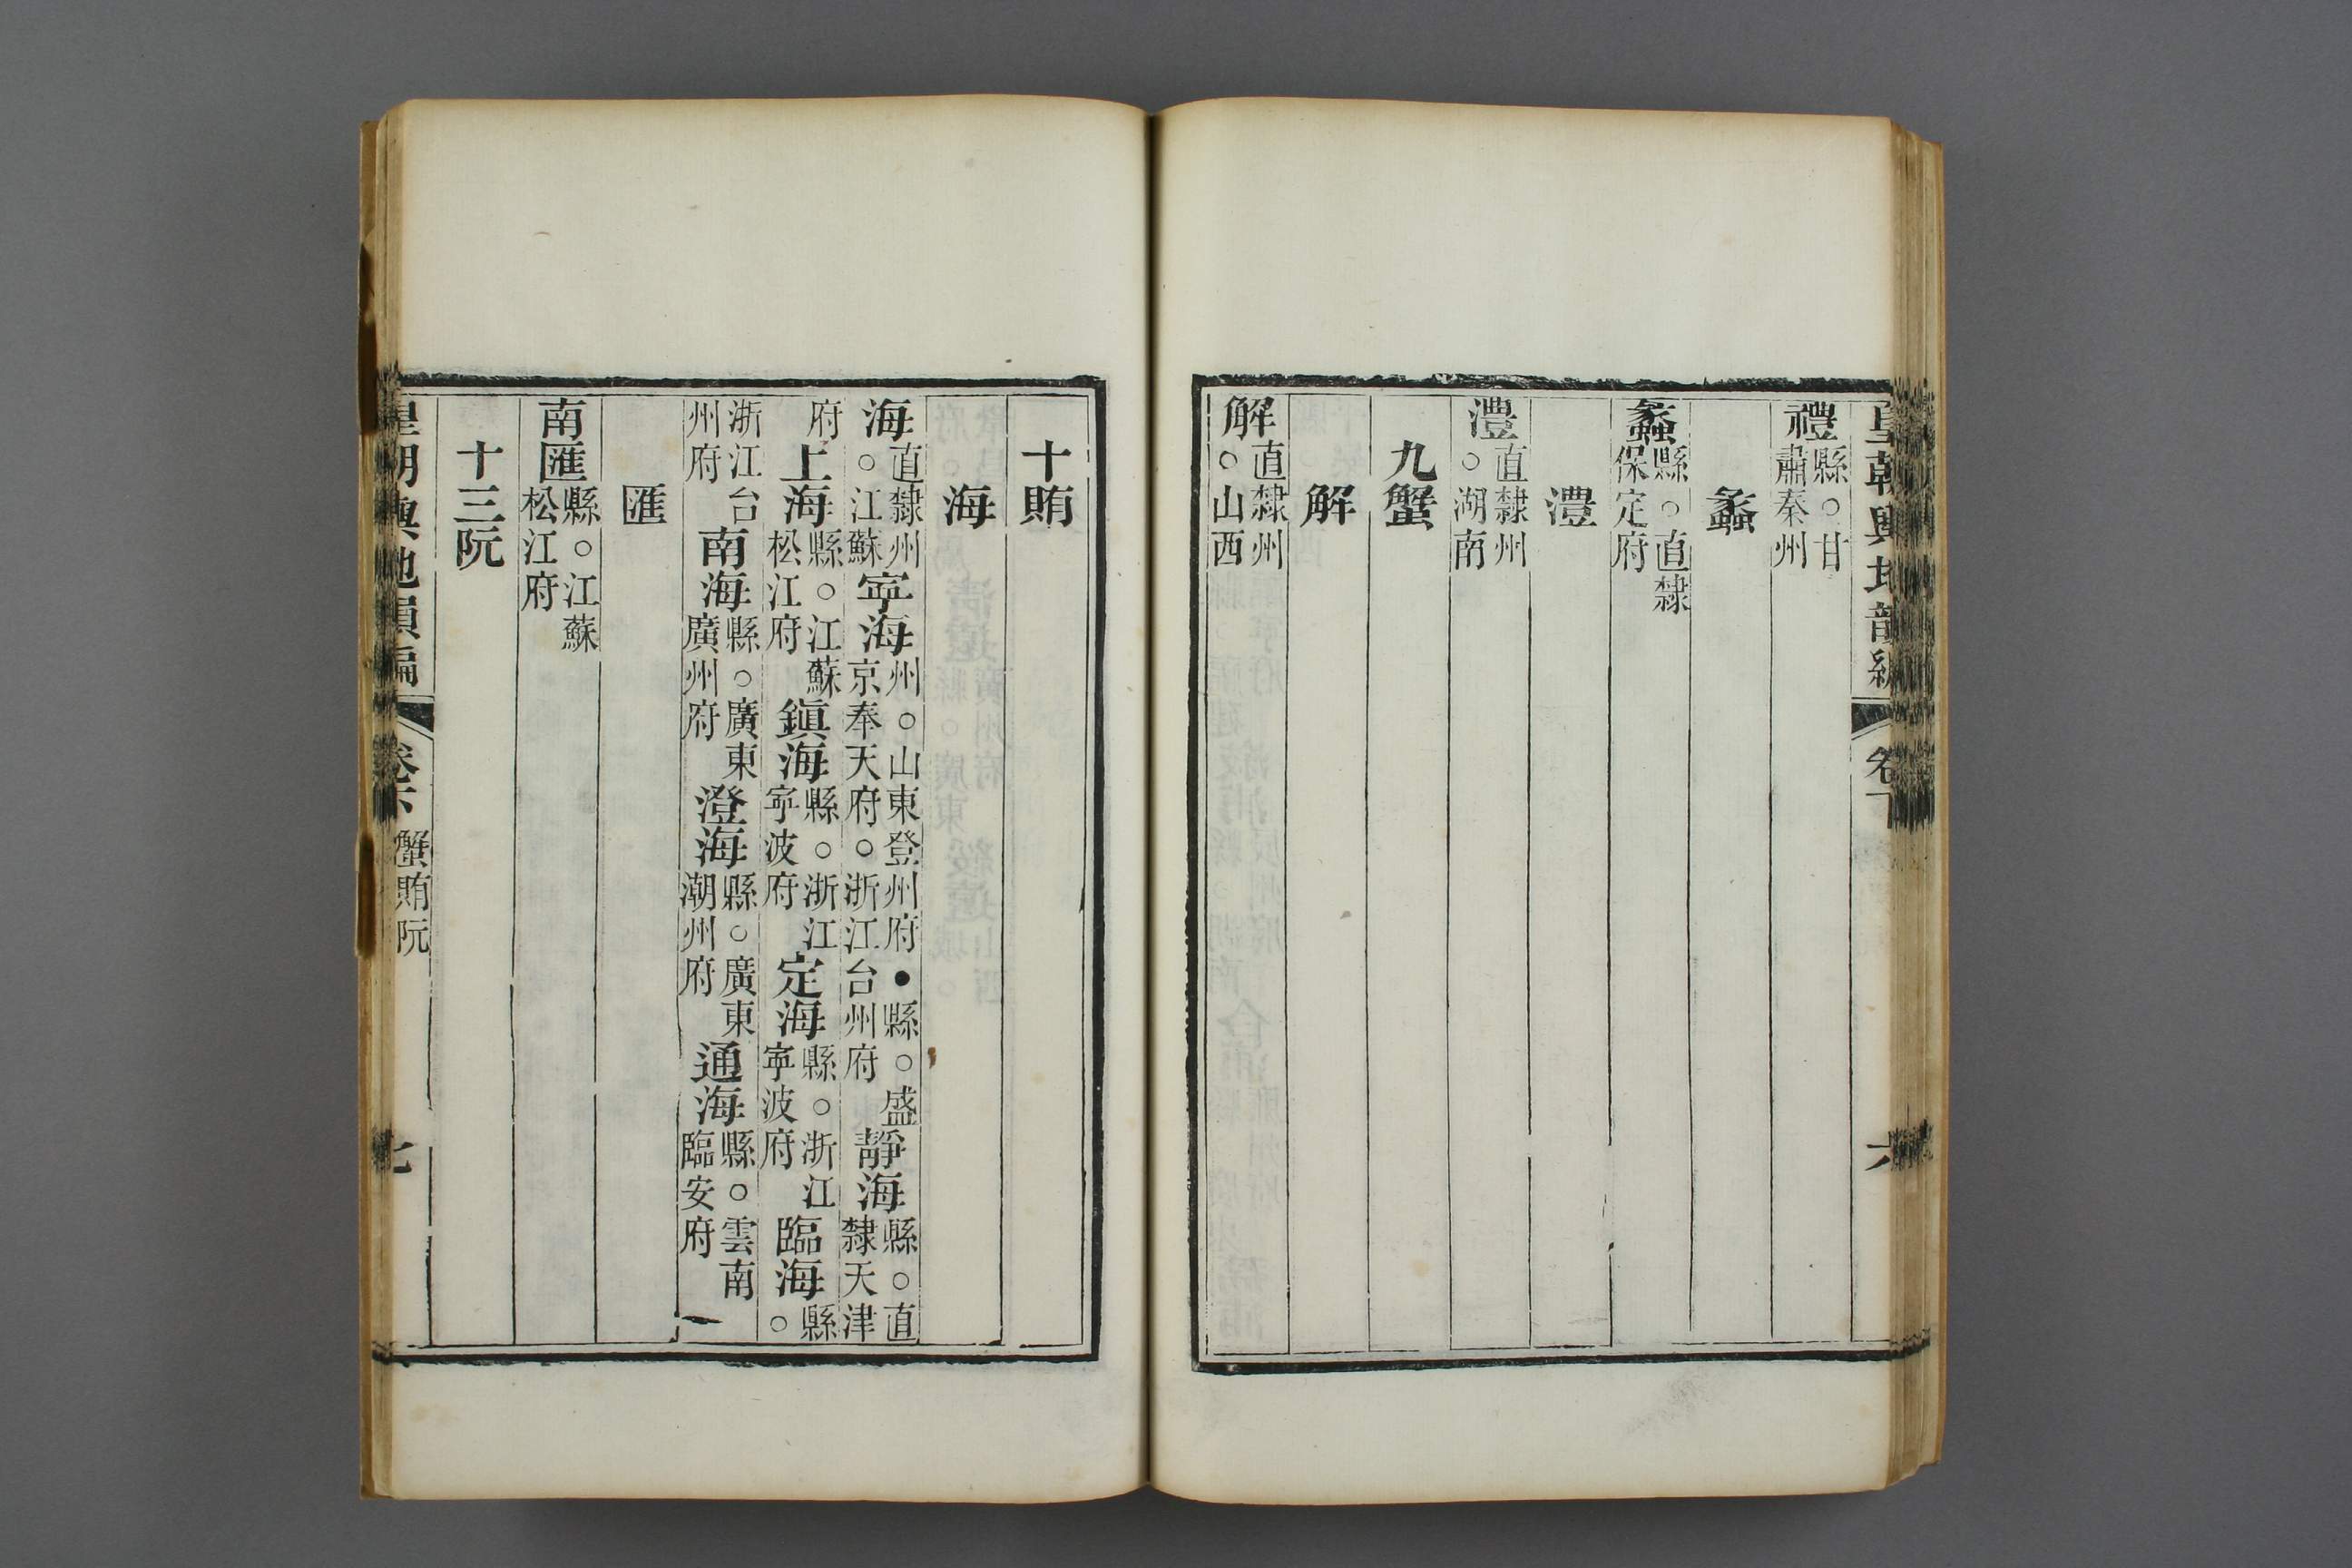 皇朝輿地韻編 卷下 六
禮縣○甘肅秦州
蠡
蠡縣○直隸保定府
澧
澧直隸州○湖南
九蟹
解
解直隸州○山西
十賄
海
海直隸州○江蘇寧海州○山東登州府●縣○盛京奉天府○浙江台州府靜海縣○直隸天津
府上海縣○江蘇松江府鎮海縣○浙江寧波府定海縣○浙江寧波府臨海縣○
浙江台州府南海縣○廣東廣州府澄海縣○廣東潮州府通海縣○雲南臨安府
匯
南匯縣○江蘇松江府
十三阮
皇朝輿地韻編 卷下 蟹賄阮 七